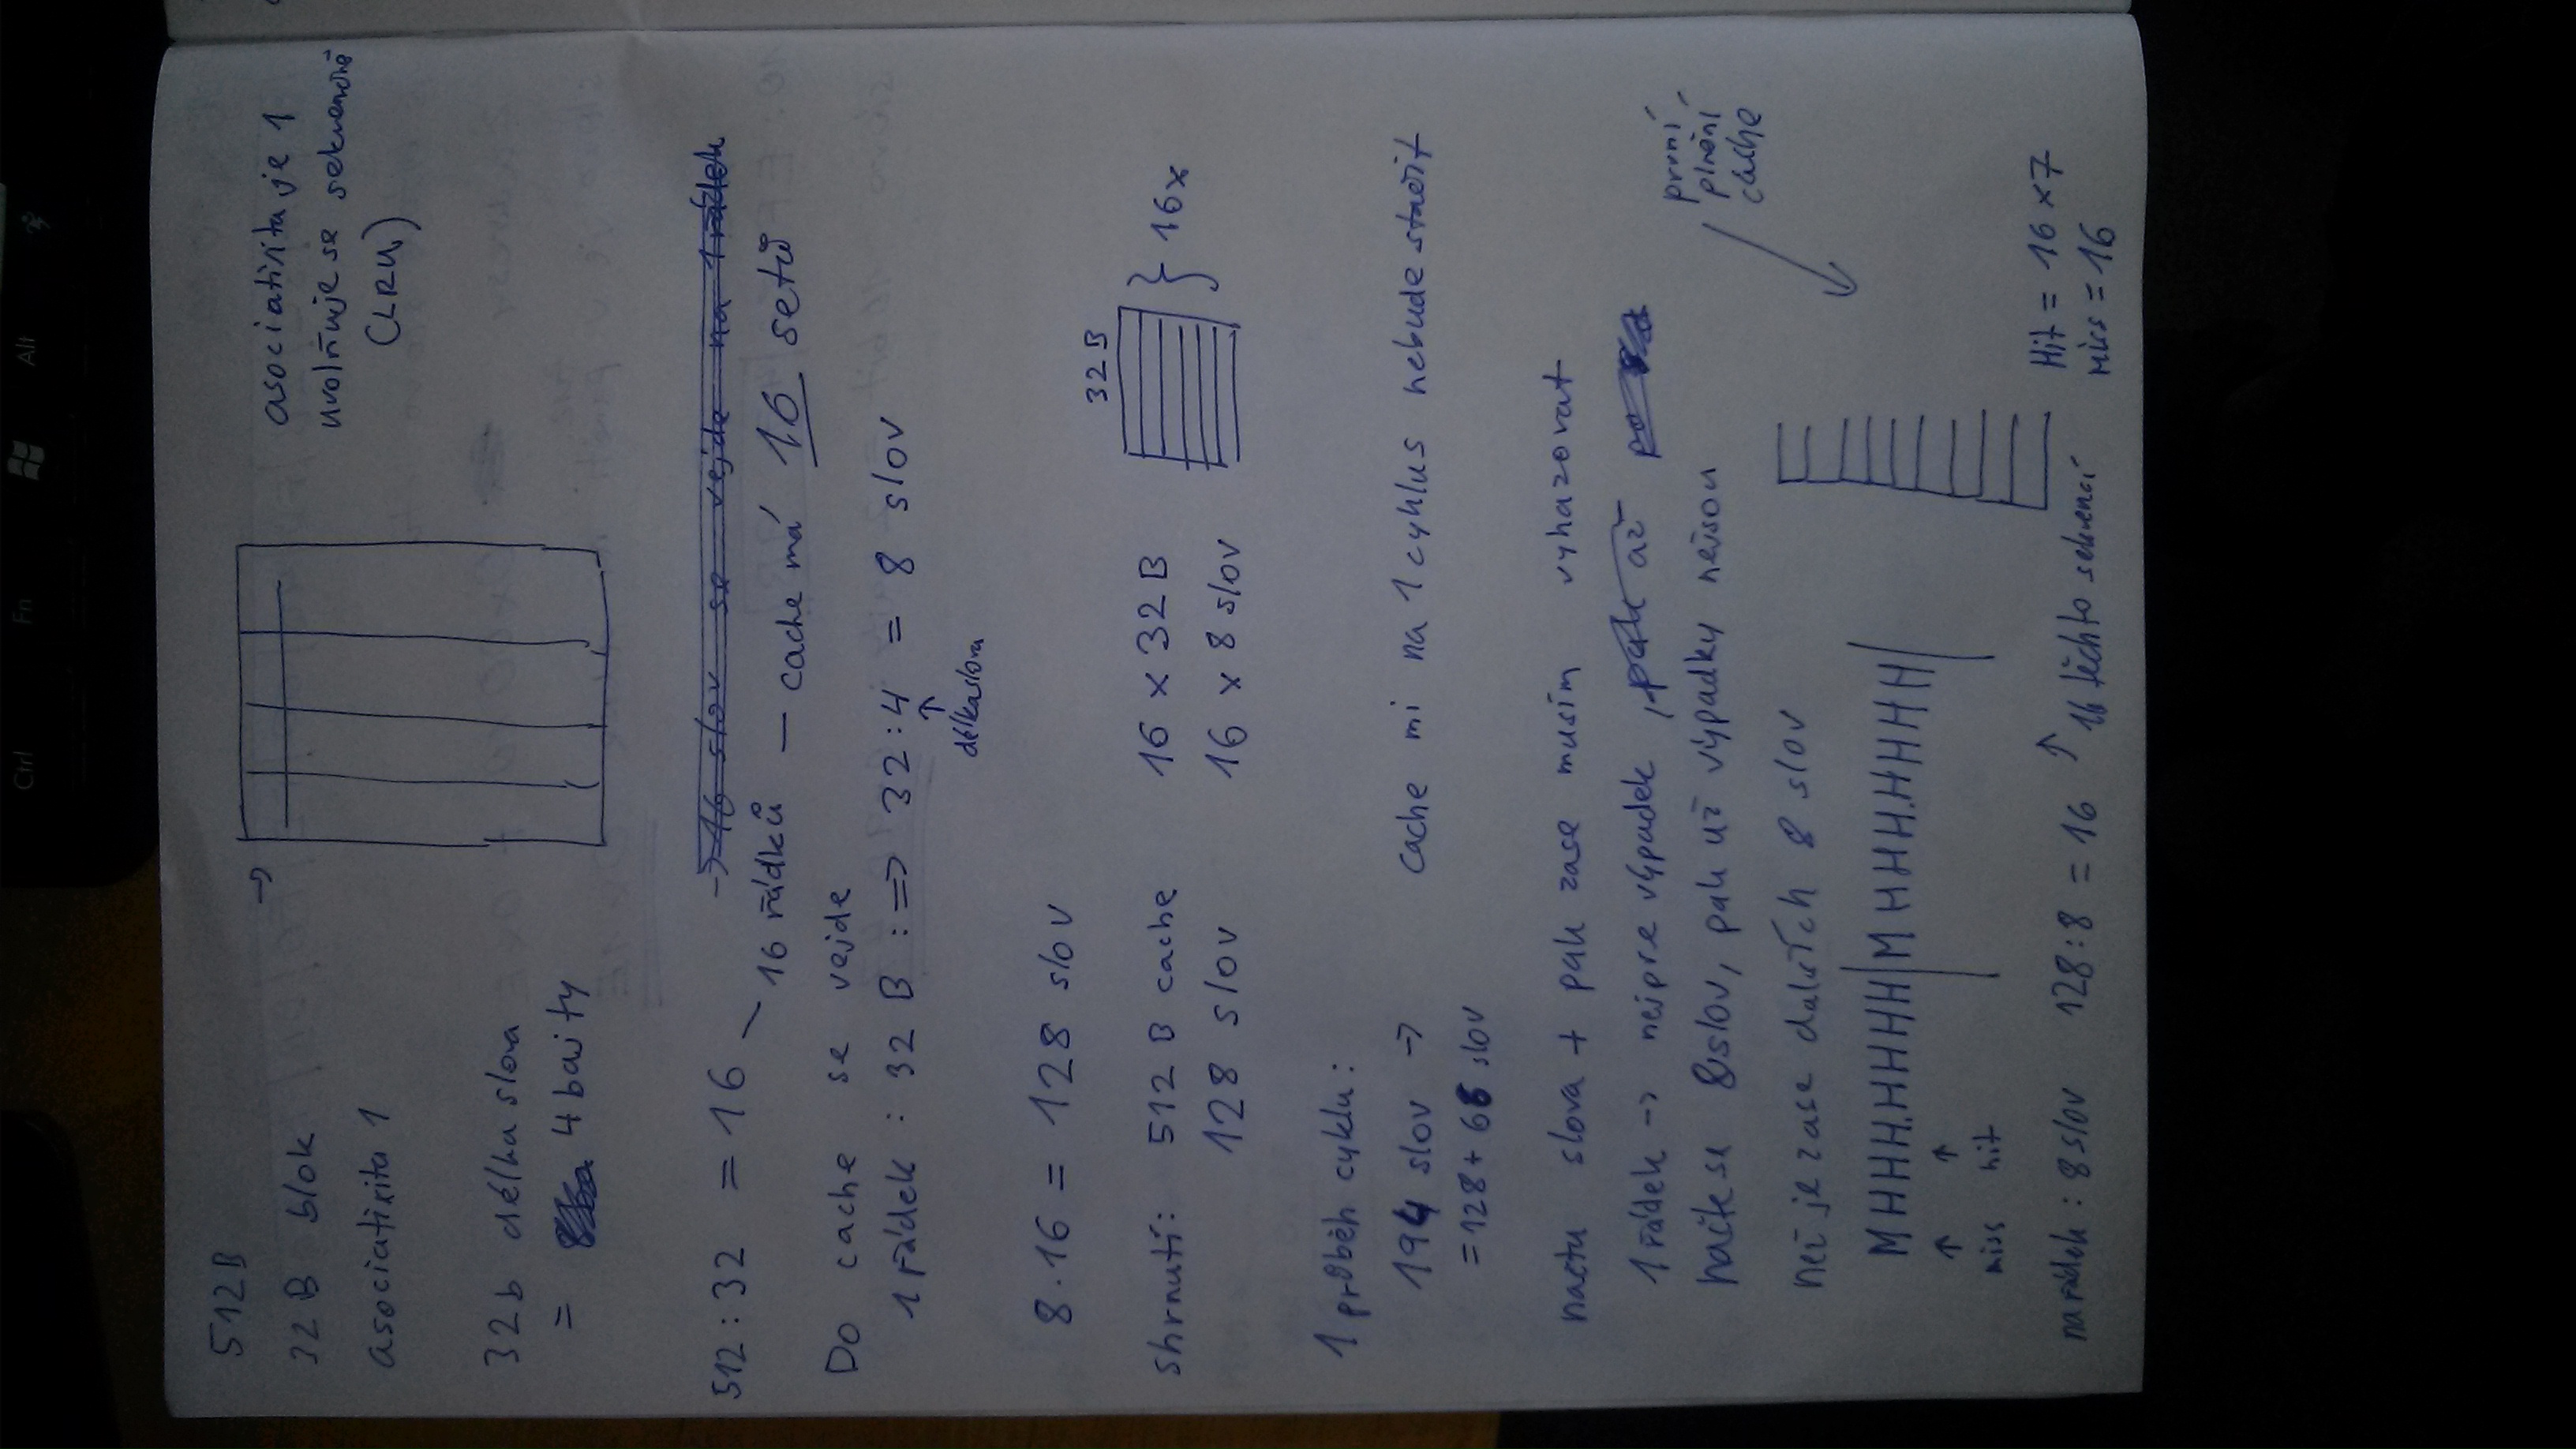 512B
32 B blok
asociativita 1
asociativita je 1
uvolňuje se sekvenčně
(LRU)
32 b délka slova
= 4 bajty
→ 16 slov se vejde na 1 řádek
512 : 32 = 16 — 16 řádků — cache má 16 setů
Do cache se vejde
1 řádek : 32 B : => 32 : 4 = 8 slov
↑
délka slova
8 . 16 = 128 slov
shrnutí: 512 B cache 16 x 32 B
128 slov 16 x 8 slov
32 B
} 16x
1 průběh cyklu:
194 slov → cache mi na 1 cyklus nebude stačit
= 128 + 66 slov
načtu slova + pak zase musím vyhazovat
1 řádek → nejprve výpadek, pak až
načte se 8 slov, pak už výpadky nejsou
než je zase dalších 8 slov
první
plnění
cache
MHHHHHHH|MHHHHHHH|
↑ ↑
miss hit
na řádek : 8 slov 128 : 8 = 16 ↑ 16 těchto sekvencí
Hit = 16 x 7
miss = 16
Ctrl
Fn
Alt